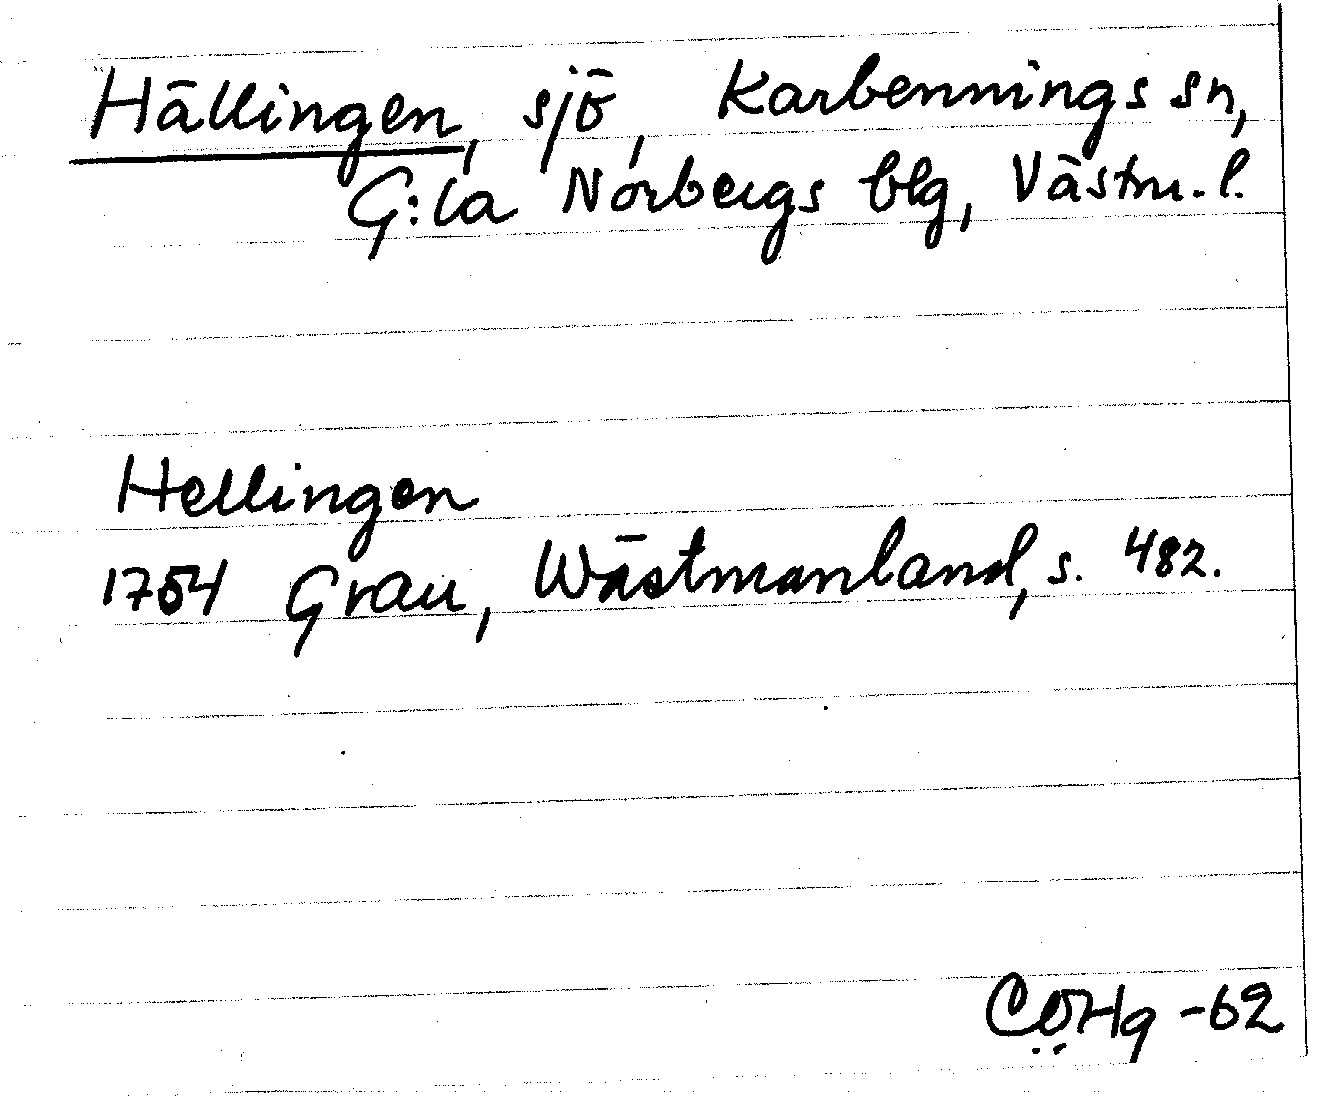 Hällingen, sjö, Karbennings sn,
G:la Norbergs blg, Västm. l.
Hellingen
1754 Grau, Wästmanland, s. 482.
CÖHg -62